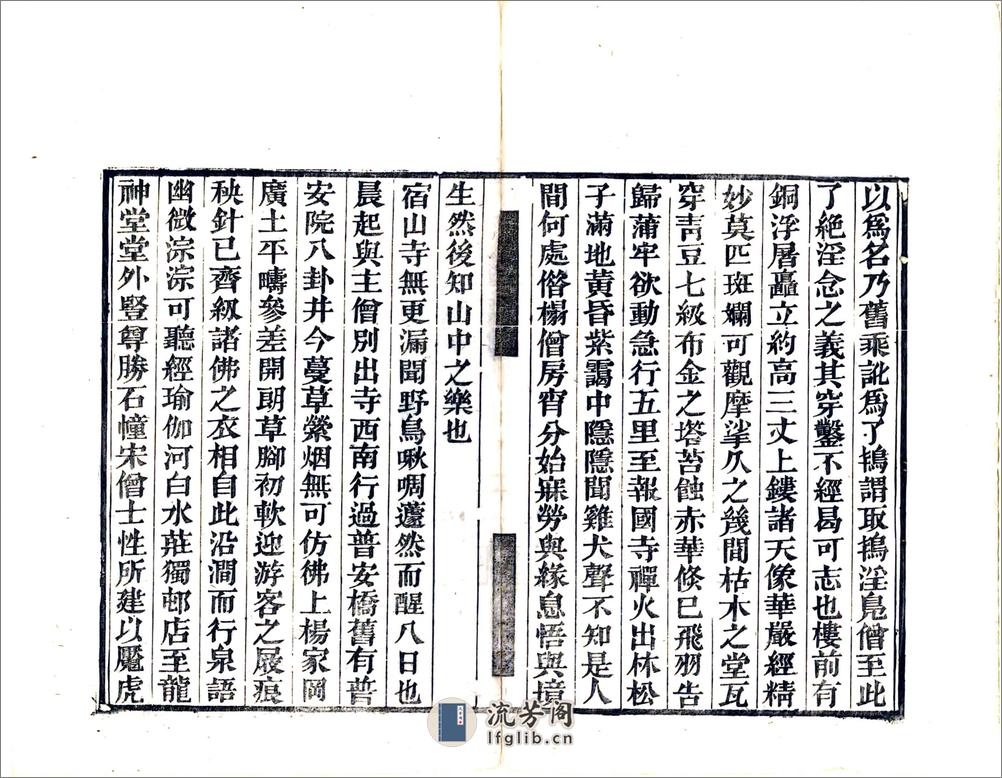 以爲名乃舊乘訛爲了鴇謂取鴇淫鳧僧至此
了絶淫念之義其穿鑿不經曷可志也樓前有
銅浮屠矗立約高三丈上鏤諸天像華嚴經精
妙莫匹斑斕可觀摩挲久之幾間枯木之堂瓦
穿靑豆七級布金之塔苔蝕赤華倏已飛羽告
歸蒲牢欲動急行五里至報國寺禪火出林松
子滿地黃昏紫靄中隱隱聞雞犬聲不知是人
間何處偹榻僧房宵分始寐勞與緣息悟與境
生然後知山中之樂也
宿山寺無更漏聞野鳥啾啁蘧然而醒八日也
晨起與主僧別出寺西南行過普安橋舊有普
安院八卦井今蔓草縈烟無可仿彿上楊家岡
廣土平疇參差開朗草腳初軟迎游客之屐痕
秧針已齊級諸佛之衣相自此沿澗而行泉語
幽微淙淙可聽經瑜伽河白水莊獨邨店至龍
神堂堂外豎尊勝石幢宋僧士性所建以魘虎
流芳阁
lfglib.cn